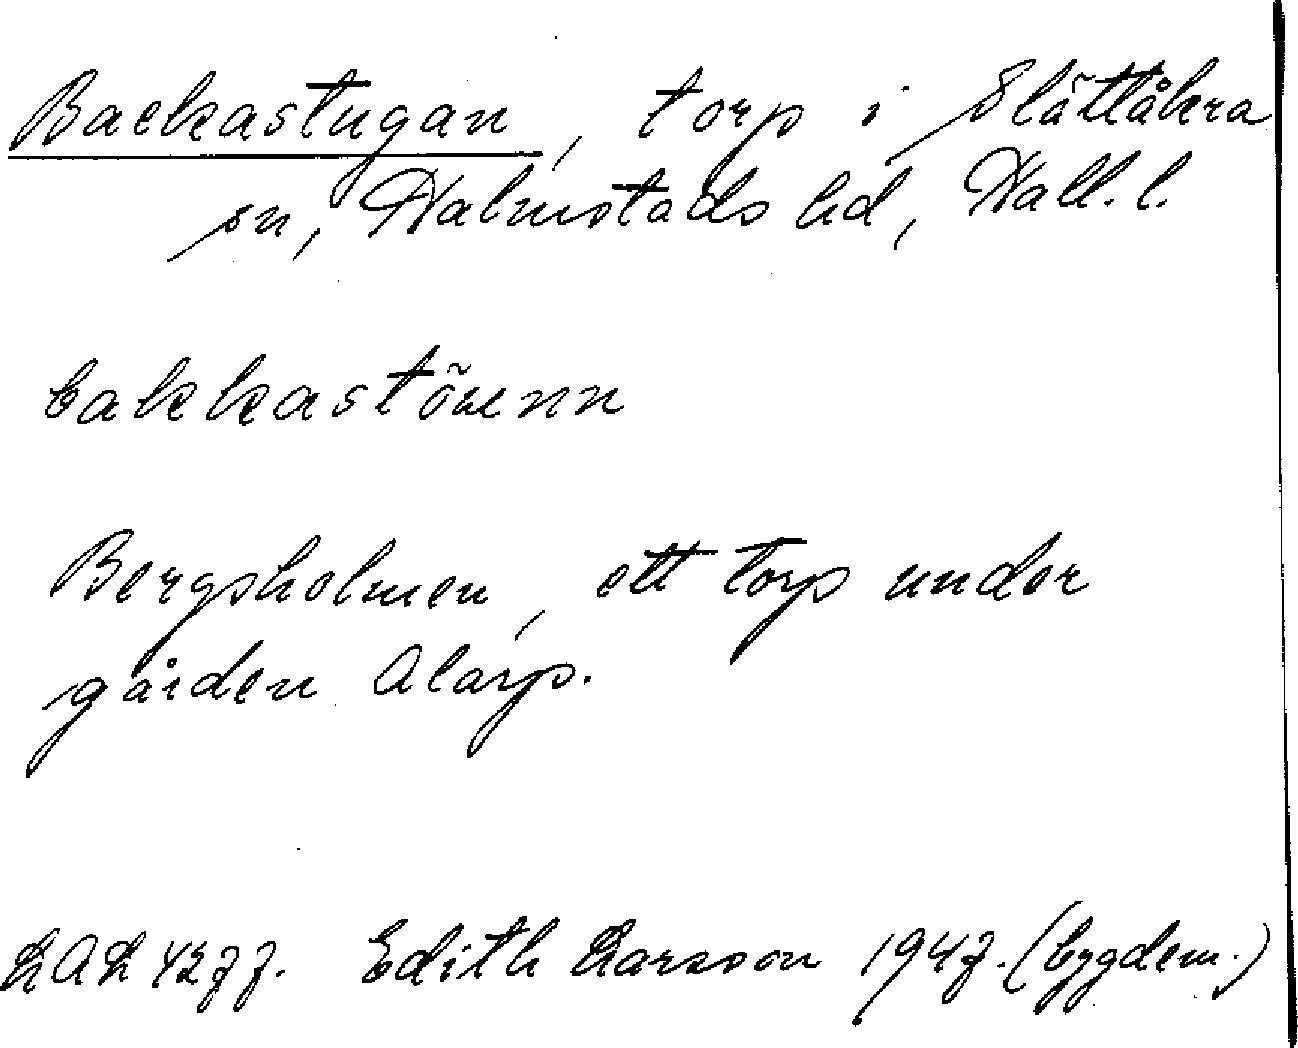 Backastugan, torp i Slättåkra
sn, Halmstads hd, Hall. l.
bakkastõuenn
Bergsholmen, ett torp under
gården Alarp.
LAL 4277. Edith Larsson 1947. (bygdem.)